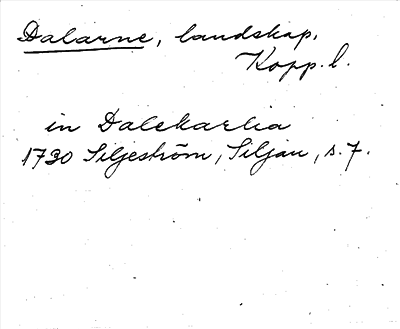 Dalarne, landskap.
Kopp. l.
in Dalekarlia
1730 Siljeström, Siljan, s. 7.